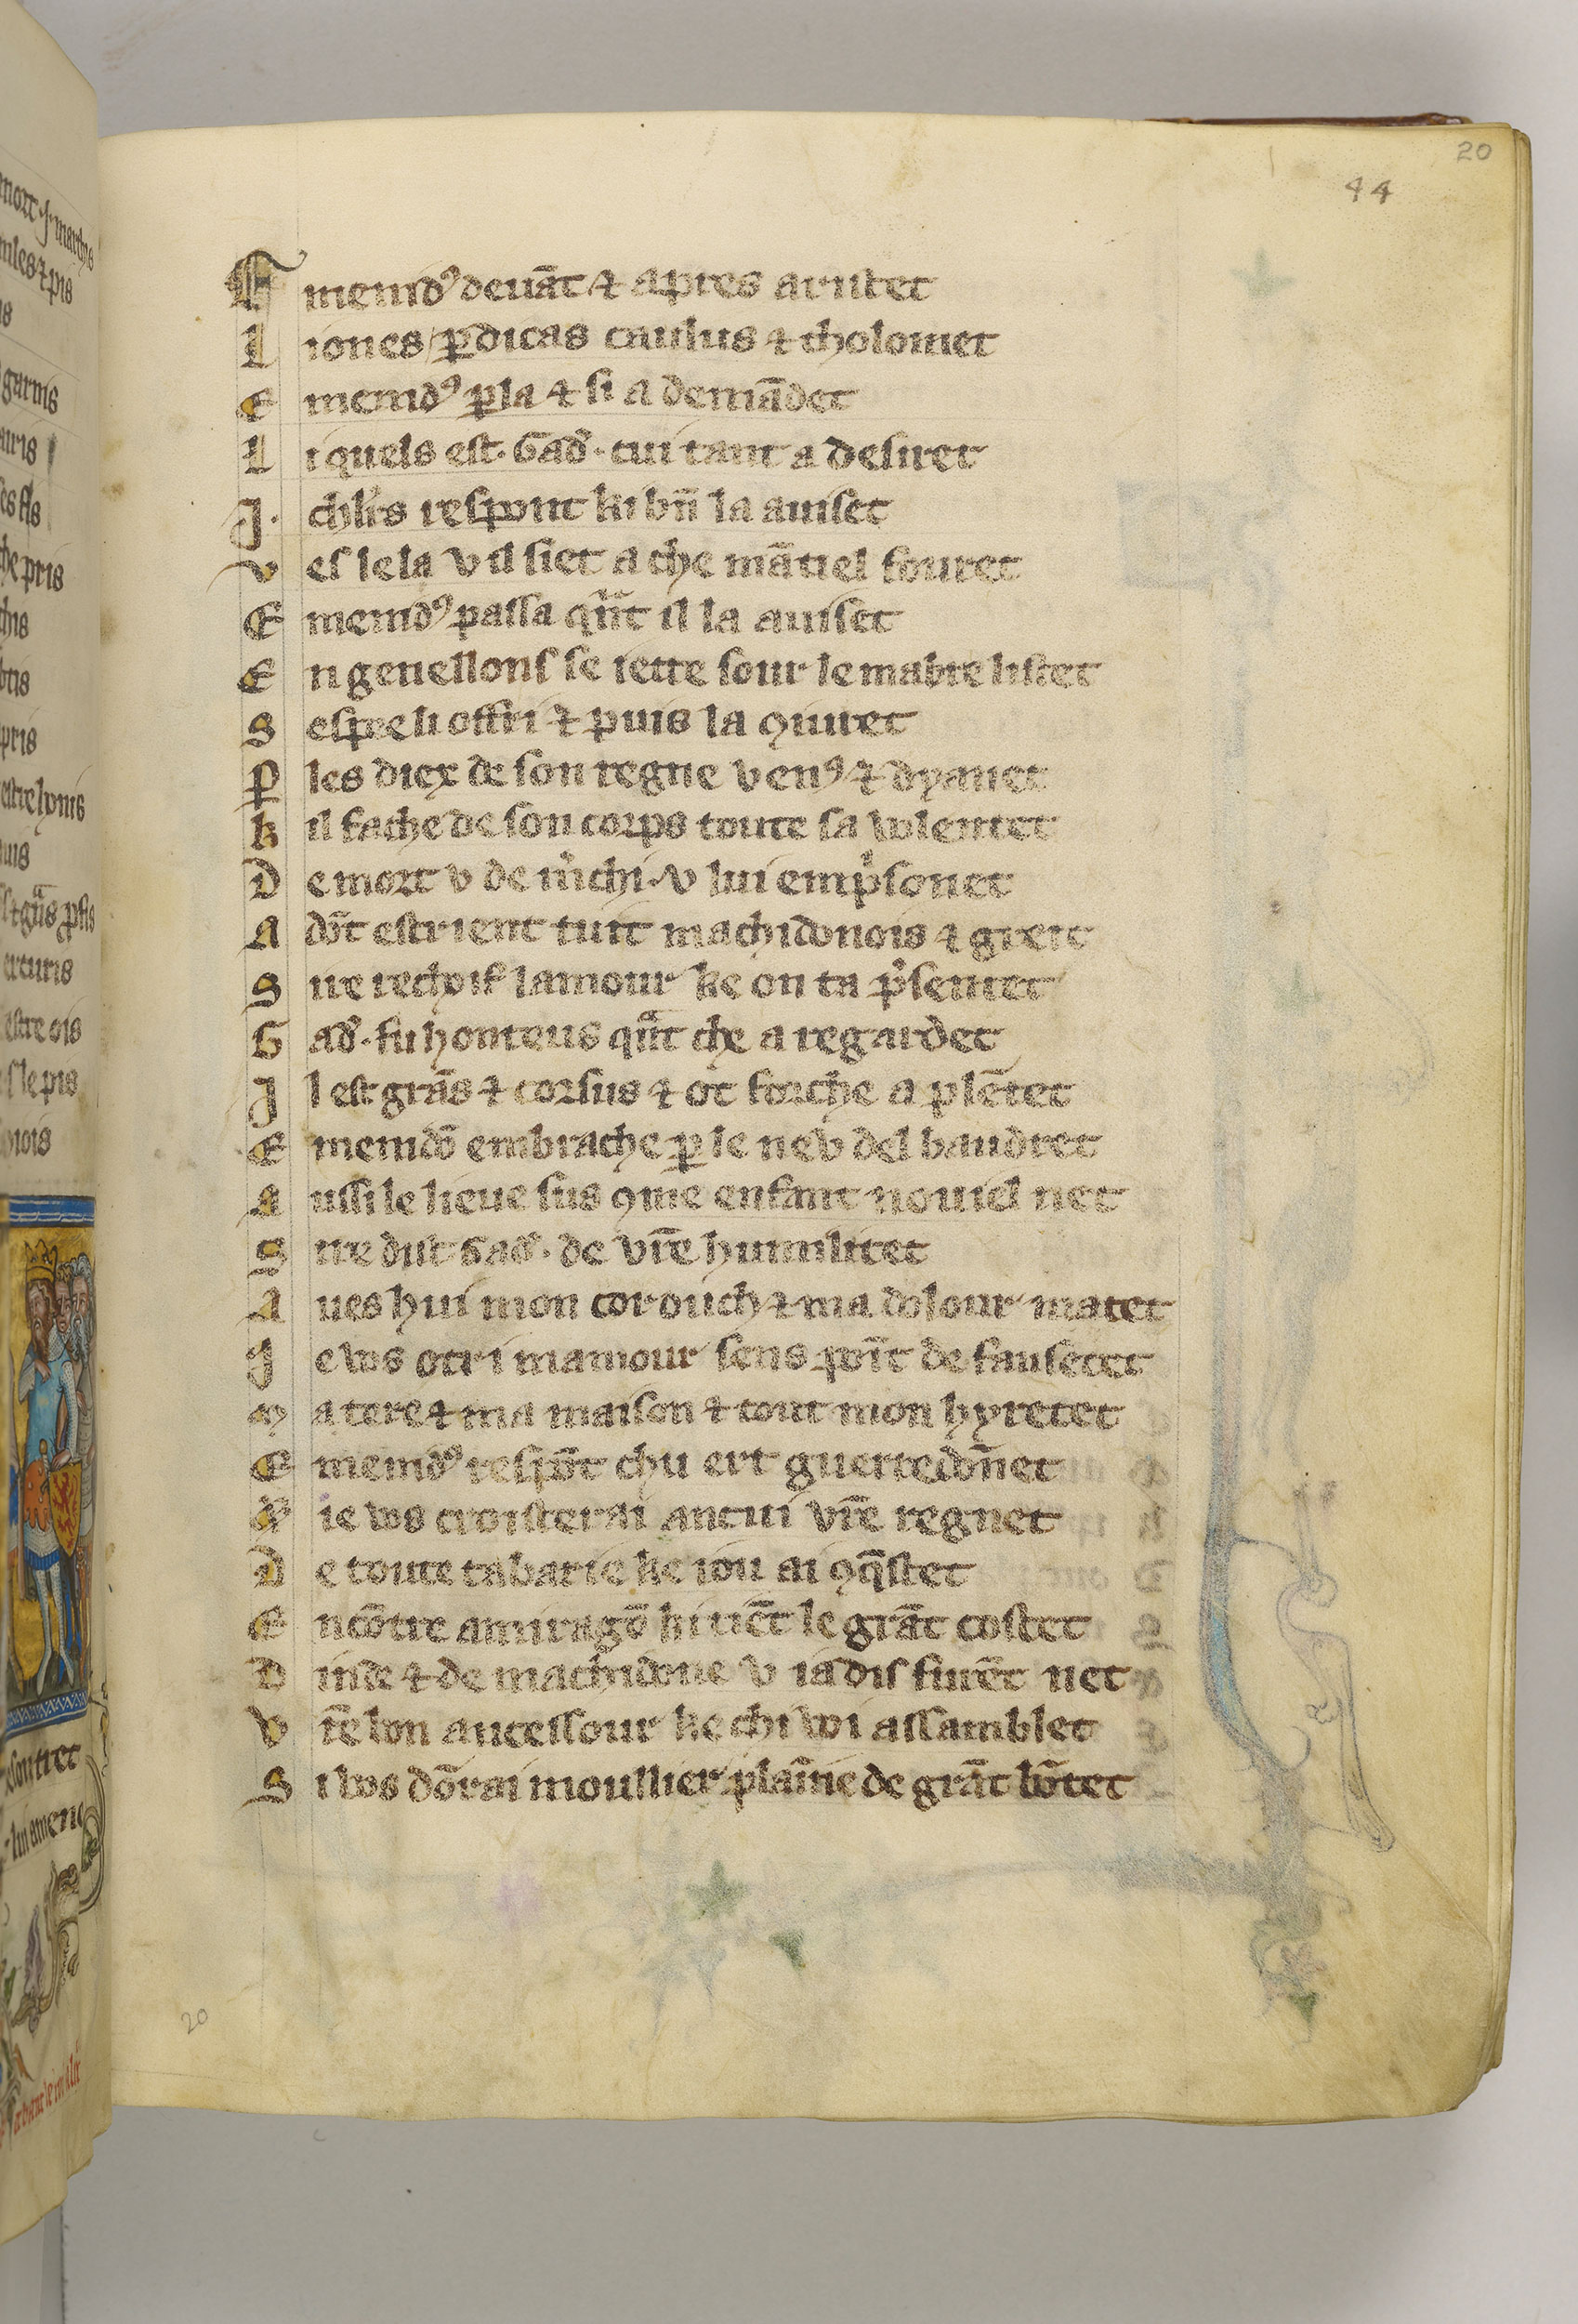 20
44
E menid⁹ deuāt ⁊ apres aristet
L iones p̱dicas caulus ⁊ tholomet
E menid⁹ p̱la ⁊ si a demādet
L iquels est. Gad᷒. cui tant a desiret
J. chl̓rs respont ki bn̄ la auiset
v es lela v il siet a che mātiel fouret
E menid⁹ passa qᵃnt il la auiset
E n geuellons se iette sour le mabre listet
S espee li offri ⁊ puis la ꝯiuret
P les diex de son regne ven⁹ ⁊ dyanet
k il fache de son corps toute sa volentet
D e mort v de m̓chi. v lui emp̓sonet
A dōt escrient tuit machidonois ⁊ greit
S ire rechoif lamour ke on ta p̓sentet
G ad᷒. fu honteus qᵃnt che a regardet
J l est grās ⁊ corsus ⁊ ot forche a plētet
E menidō embrache p̱ le nev del baudret
A ussi le lieue sus ꝯme enfant nouiel net
S ire dist Gad᷒. de vr̄e humilitet
A ues hui mon corouch ⁊ ma dolour matet
J e vos otri mamour sens poīt de fausetet
M a tere ⁊ ma maison ⁊ tout mon hyretet
E menid⁹ respōt chu ert guerredōnet
K ie vos croisterai ancui vr̄e regnet
D e toute tabarie ke iou ai ꝯq̄stet
E ncōtre amiragō ki uēt le grāt costet
D inde ⁊ de machidone v iadis furēt net
V r̄e bon ancessour ke chi voi assamblet
S i vos dōrai moullier plaīne de grāt bōtet
20